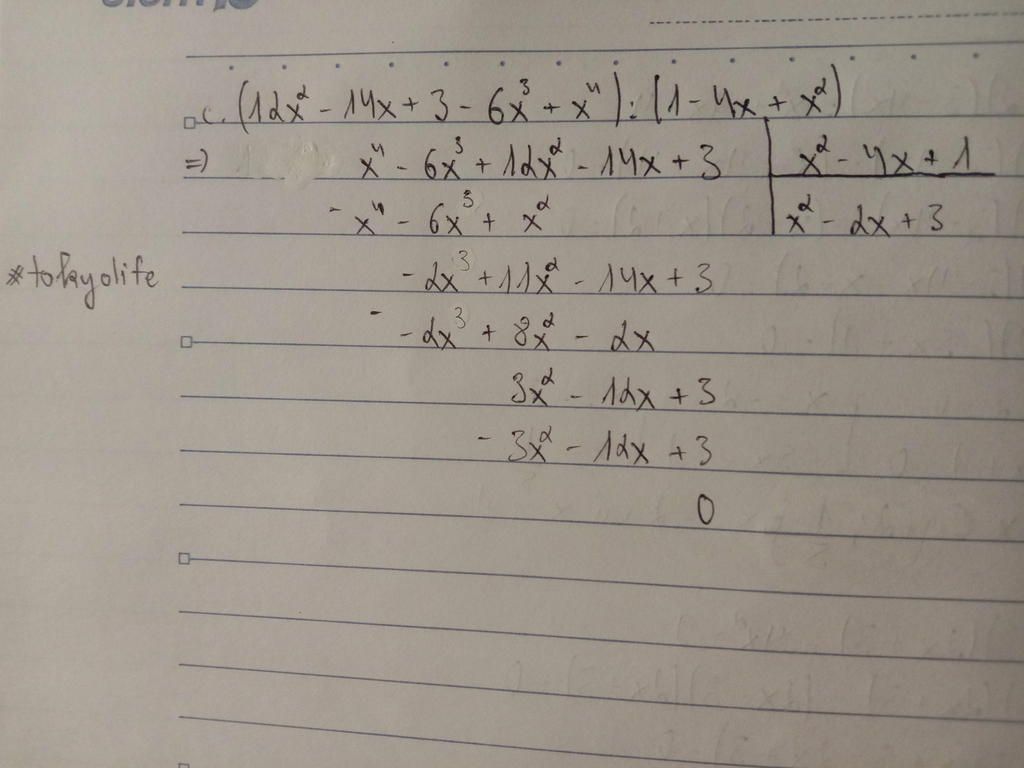 c. (12x² - 14x + 3 - 6x³ + x⁴) : (1 - 4x + x²)
=) x⁴ - 6x³ + 12x² - 14x + 3 | x² - 4x + 1
- x⁴ - 6x³ + x² | x² - 2x + 3
*tokyolife
- 2x³ + 11x² - 14x + 3
- - 2x³ + 8x² - 2x
3x² - 12x + 3
- 3x² - 12x + 3
0